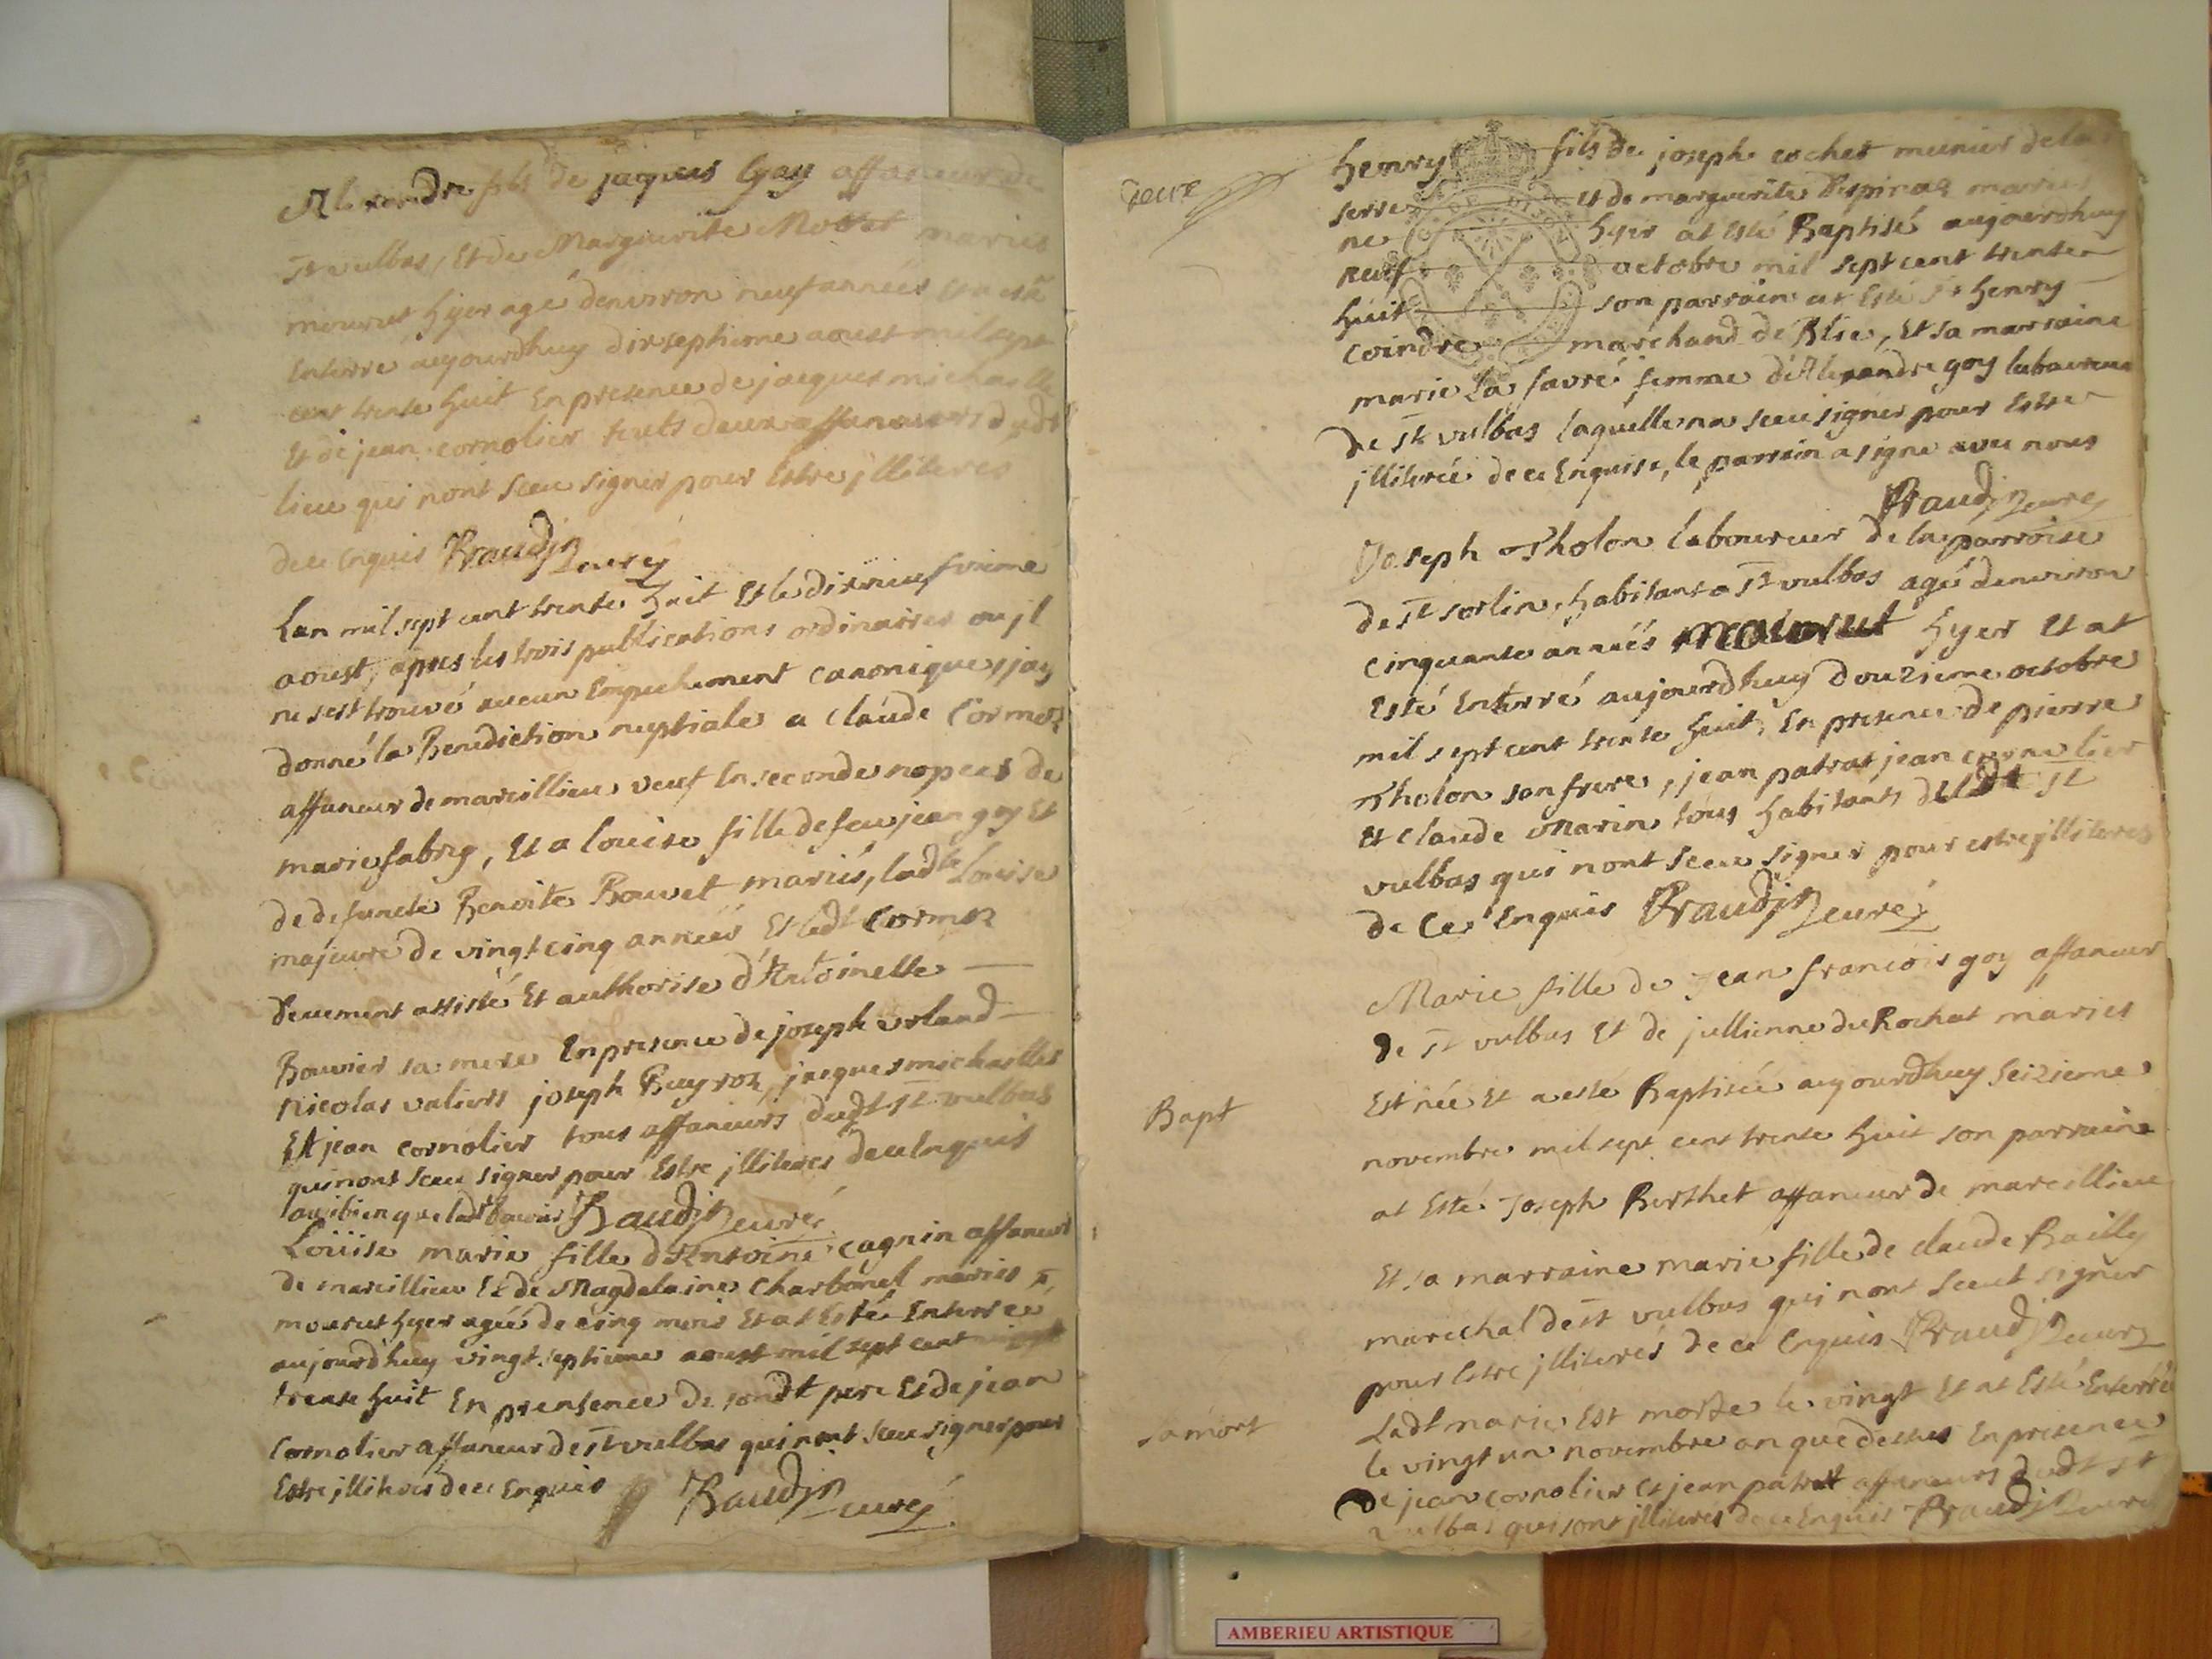 Alexandre fils de jaques Goy affaneur de
St vulbas, Et de Marguerite Mottet mariés
mourut hyer agé denviron neuf années et a esté
Enterré aujourdhuy dixseptieme aoust mil sept
cent trente huit En presence de jacques michaelle
Et de jean cornolier touts deux affaneurs dudt
lieu qui nont sceu signer pour Estre jlliteres
de ce Enquis Praudin curé
Lan mil sept cent trente huit Et le dixneufvieme
aoust, apres les trois publications ordinaires ou jl
ne sest trouvé aucun Empechement canonique, jay
donné la Benediction nuptiale a claude Cormoz
affaneur de marcillieu veuf En seconde nopces de
marie fabry, Et a louise fille de feu jean goy Et
de defuncte Benoite Bouvet mariés, ladte Louise
majeure de vingt cinq années Et ledt Cormoz
deuement assisté Et authorise d'Antoinette
Bouvier sa mere En presence de joseph orland
nicolas valiers joseph Buyroz, jacques michaelles
Et jean cornolier tous affaneurs dudt St vulbas
qui nont sceu signer pour Estre jlliteres de ce Enquis
aussi bien que ladt bouvier Praudin curé
Loüise marie fille d'Antoine cagnin affaneur
de marcillieu Et de Magdelaine Charbonel mariés
mourut hyer agée de cinq mois Et at Esté Enterrée
aujourdhuy vingt septieme aoust mil sept cent
trente huit En presence de sondt pere Et de jean
Cornolier affaneur de St vulbas qui nont sceu signer pour
Estre jlliteres de ce Enquis Praudin curé
henry fils de joseph cochet munier de la
serre et de marguerite Despinaz mariés
ne hyer at Esté Baptisé aujourdhuy
neuf octobre mil sept cent trente
huit son parrain at Esté sr henry
Coindre marchand de Blie, Et sa marraine
marie La favre femme d'Alexandre goy laboureur
de St vulbas laquelle na sceu signer pour Estre
jlliterée de ce Enquise, le parrain a signe avec nous
Praudin curé
Joseph Tholon laboureur de la parroisse
de St sorlin, habitant a St vulbas agé denviron
cinquante années mourut hyer Et at
Esté Enterré aujourdhuy douzieme octobre
mil sept cent trente huit, En presence de pierre
Tholon son frere, jean patrat jean cornolier
Et claude Marin tous habitants dudt St
vulbas qui nont sceu signer pour estre jlliteres
de ce Enquis Praudin curé
Bapt
Marie fille de jean francois goy affaneur
de St vulbas Et de jullienne du Rochat mariés
Est née Et a esté Baptisée aujourdhuy seizieme
novembre mil sept cent trente huit son parrain
at Esté Joseph Berthet affaneur de marcillieu
Et sa marraine marie fille de claude Bailly
marechal de St vulbas qui nont sceut signer
pour Estre jlliterés de ce Enquis Praudin curé
sa mort
Ladt marie Est morte le vingt Et at Esté Enterrée
le vingt un novembre an que dessus En presence
de jean cornolier Et jean patrat affaneurs dudt St
vulbas qui sont jlliterés de ce Enquis Praudin curé
AMBERIEU ARTISTIQUE